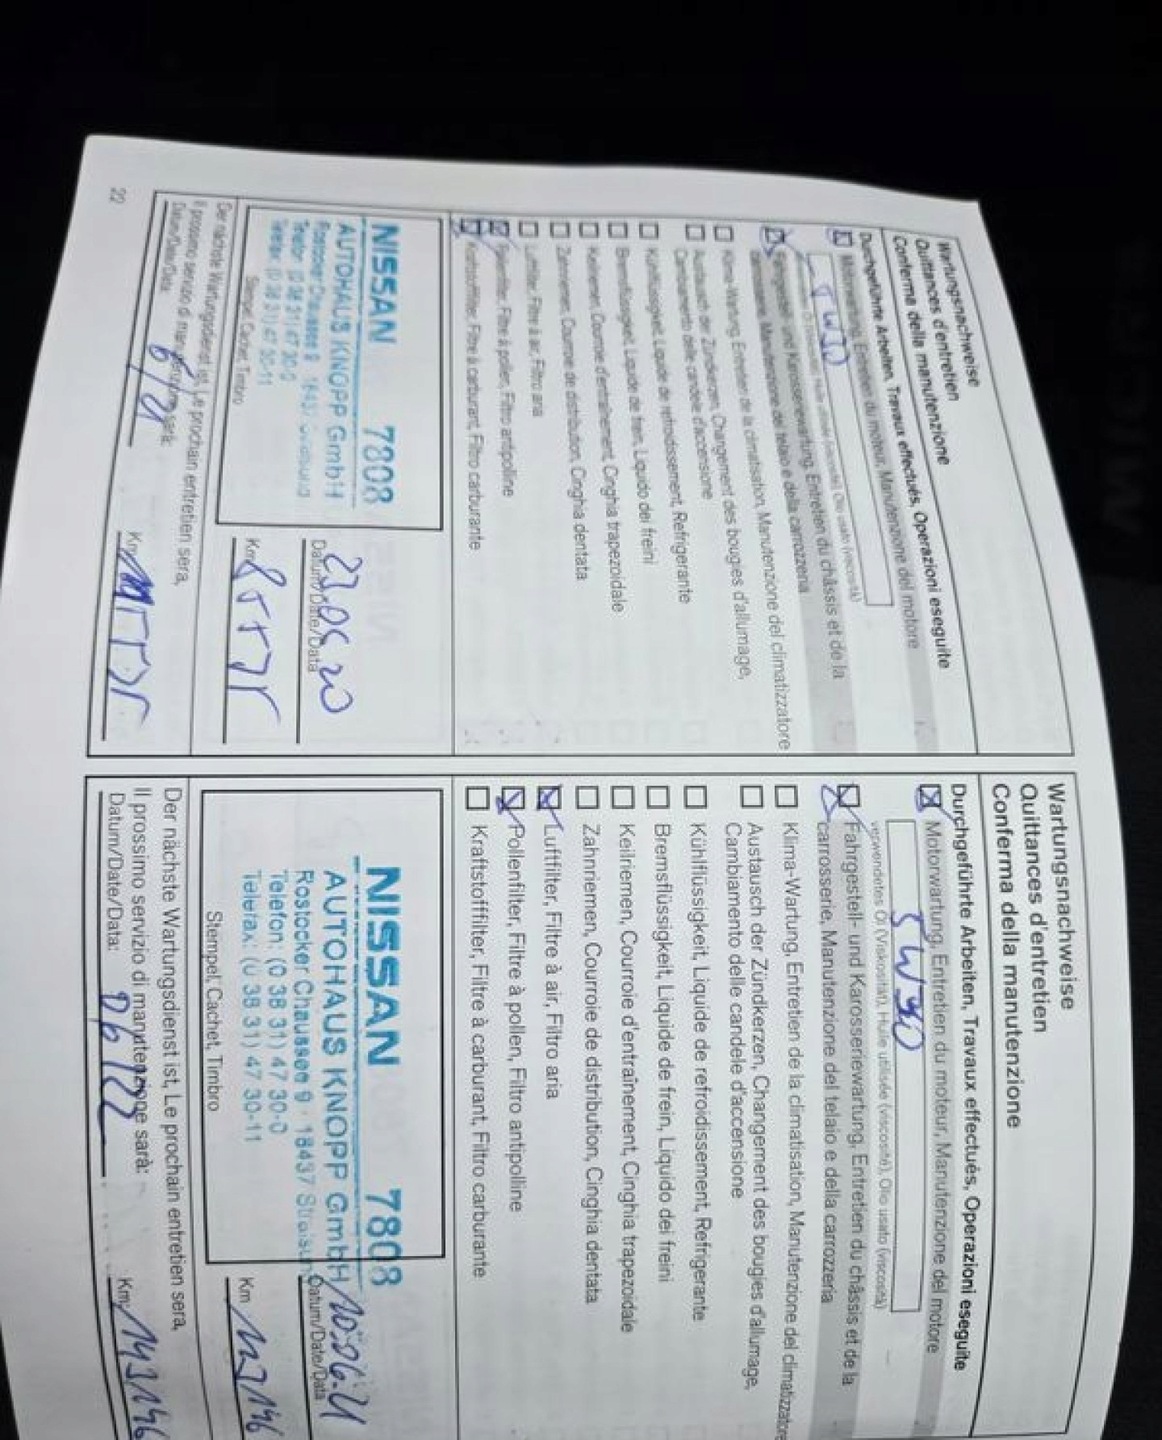 Wartungsnachweise
Quittances d'entretien
Conferma della manutenzione
Durchgeführte Arbeiten, Travaux effectués, Operazioni eseguite
Motorwartung, Entretien du moteur, Manutenzione del motore
5W30
Fahrgestell- und Karosseriewartung, Entretien du châssis et de la
carrosserie, Manutenzione del telaio e della carrozzeria
Klima-Wartung, Entretien de la climatisation, Manutenzione del climatizzatore
Austausch der Zündkerzen, Changement des bougies d'allumage,
Cambiamento delle candele d'accensione
Kühlflüssigkeit, Liquide de refroidissement, Refrigerante
Bremsflüssigkeit, Liquide de frein, Liquido dei freini
Keilriemen, Courroie d'entraînement, Cinghia trapezoidale
Zahnriemen, Courroie de distribution, Cinghia dentata
Luftfilter, Filtre à air, Filtro aria
Pollenfilter, Filtre à pollen, Filtro antipolline
Kraftstofffilter, Filtre à carburant, Filtro carburante
NISSAN 7808
AUTOHAUS KNOPP GmbH
Rostocker Chaussee 9 18437
Telefon (0 38 31) 47 30-0
Telefax (0 38 31) 47 30-11
Stempel, Cachet, Timbro
Datum/Date/Data
Km
Der nächste Wartungsdienst ist, Le prochain entretien sera,
Il prossimo servizio di manutenzione sarà:
Datum/Date/Data: 6/21
Km:
22
Wartungsnachweise
Quittances d'entretien
Conferma della manutenzione
Durchgeführte Arbeiten, Travaux effectués, Operazioni eseguite
Motorwartung, Entretien du moteur, Manutenzione del motore
5W30
verwendetes Öl (Viskosität), Huile utilisée (viscosité), Olio usato (viscosità)
Fahrgestell- und Karosseriewartung, Entretien du châssis et de la
carrosserie, Manutenzione del telaio e della carrozzeria
Klima-Wartung, Entretien de la climatisation, Manutenzione del climatizzatore
Austausch der Zündkerzen, Changement des bougies d'allumage,
Cambiamento delle candele d'accensione
Kühlflüssigkeit, Liquide de refroidissement, Refrigerante
Bremsflüssigkeit, Liquide de frein, Liquido dei freini
Keilriemen, Courroie d'entraînement, Cinghia trapezoidale
Zahnriemen, Courroie de distribution, Cinghia dentata
Luftfilter, Filtre à air, Filtro aria
Pollenfilter, Filtre à pollen, Filtro antipolline
Kraftstofffilter, Filtre à carburant, Filtro carburante
NISSAN 7808
AUTOHAUS KNOPP GmbH
Rostocker Chaussee 9 · 18437
Telefon: (0 38 31) 47 30-0
Telefax: (0 38 31) 47 30-11
Stempel, Cachet, Timbro
Datum/Date/Data 10.06.21
Km 113146
Der nächste Wartungsdienst ist, Le prochain entretien sera,
Il prossimo servizio di manutenzione sarà:
Datum/Date/Data: 06/22
Km: 143146